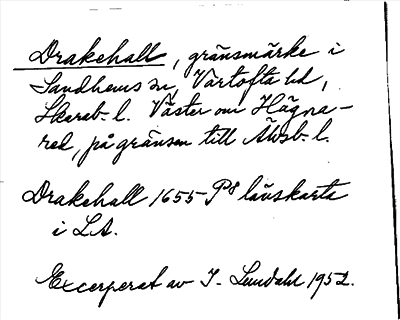 Drakehall, gränsmärke i
Sandhems sn, Vartofta hd,
Skarab. l. Väster om Hägna-
red, på gränsen till Älvsb. l.
Drakehall 1655 P8 länskarta
i LA.
Excerperat av I. Lundahl 1952.